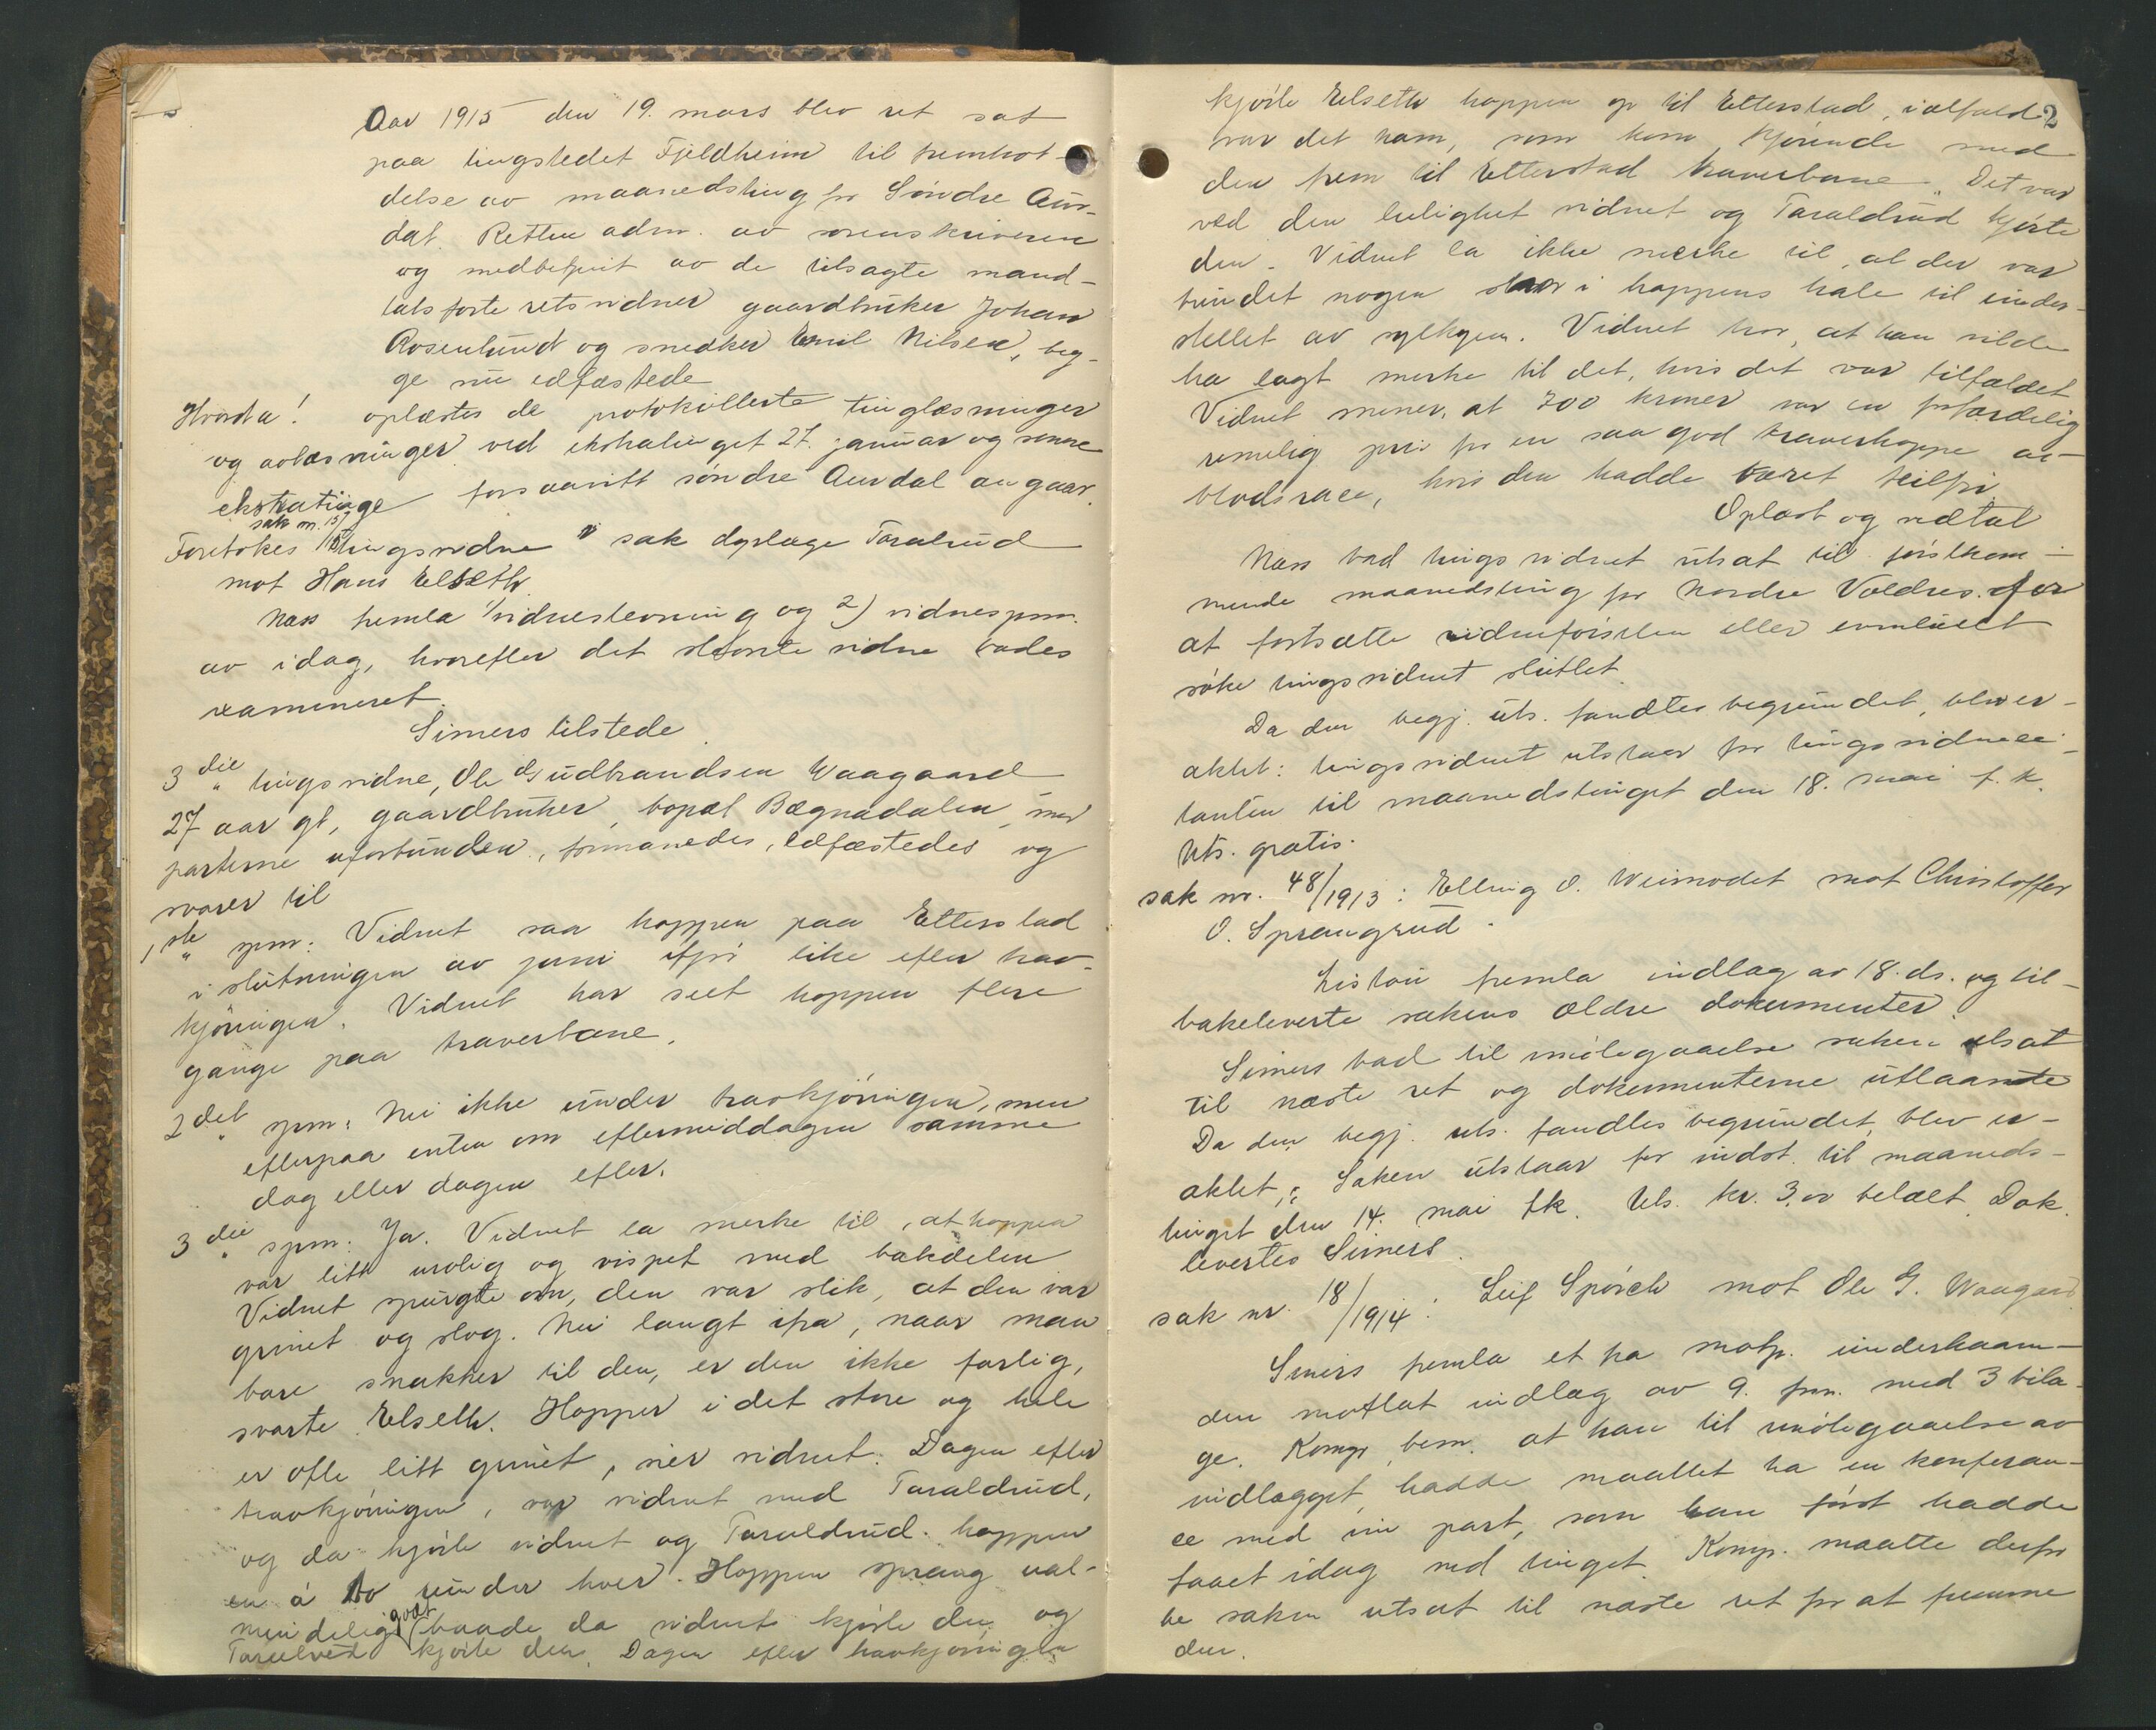 Aar 1915 den 19. mars blev ret sat
paa tingstedet Fjeldheim til fremhot-
delse av maanedsting for Søndre Aur-
dal. Retten adm. av sorenskriveren
og medbetjent av de tilsagte mand-
talsførte retsvidner gaardbruker Johan
Rosenlund og snedker Emil Nilsen, beg-
ge nu edfæstede
Hvorda! oplæstes de protokollerte tinglæsninger
og avlæsninger ved ekstratinget 27. januar og senere
ekstratinge forsaavitt søndre Aurdal angaar.
sak nr. 15/
Foretokes tingsvidne i sak dyrlæge Taralrud
mot Hans Elseth.
Næss fremla 1/ vidnestevning og 2) vidnespm.
av idag, hvorefter det stevnte vidne bades
examineret.
Simers tilstede.
3die tingsvidne, Ole Gudbrandsen Waagaard
27 aar gl, gaardbruker, bopæl Bægnadalen, med
parterne uforbunden, formanedes, edfæstedes og
svarer til
1ste spm: Vidnet saa hoppen paa Etterstad
i slutningen av juni ifjor like efter trav-
kjøringen. Vidnet har seet hoppen flere
gange paa traverbane.
2det spm: Nei ikke under travkjøringen, men
efterpaa enten om eftermiddagen samme
dag eller dagen efter.
3die spm: Ja. Vidnet la merke til, at hoppen
var litt urolig og vispet med bakdelen
Vidnet spurgte om, den var slik, at den var
grinet og slog. Nei langt ifra, naar man
bare snakker til den, er den ikke farlig,
svarte Elseth. Hopper i det store og hele
er ofte litt grinet, sier vidnet. Dagen efter
travkjøringen, var vidnet med Taraldrud,
og da kjørte vidnet og Taraldrud hoppen
en à to runder hver. Hoppen sprang ual-
mindelig godt baade da vidnet kjørte den og
Taralrud kjørte den. Dagen efter travkjøringen
2
kjørte Elseth hoppen op til Etterstad, ialfald
var det ham, som kom kjørende med
den frem til Etterstad traverbane. Det var
ved den leilighet vidnet og Taraldrud kjørte
den. Vidnet la ikke merke til, at der var
bundet nogen snor i hoppens hale til under-
stellet av sylkyen. Vidnet tror, at han vilde
ha lagt merke til det, hvis det var tilfældet
Vidnet mener, at 700 kroner var en forfærdelig
rimelig pris for en saa god traverhoppe av
blodsrace, hvis den hadde været feilfri.
Oplæst og vedtat
Næss bad tingsvidnet utsat til førstkom-
mende maanedsting for Nordre Valdres for
at fortsætte vidneførselen eller eventuelt
søke tingsvidnet sluttet.
Da den begj. uts. fandtes begrundet, blev er-
aktet: tingsvidnet utstaar for tingsvidneci-
tanten til maanedstinget den 18. mai f. k.
Uts. gratis.
sak nr. 48/1913: Elling O. Weimodet mot Christoffer
O. Sprangrud.
Liston fremla indlæg av 18. ds. og til-
bakeleverte sakens ældre dokumenter.
Simers bad til imøtegaaelse saken utsat
til næste ret og dokumenterne utlaante
Da den begj. uts. fandtes begrundet, blev er-
aktet: Saken utstaar for indst. til maaneds-
tinget den 14. mai fk. Uts. kr. 3,00 betalt. Dok.
levertes Simers.
sak nr. 18/1914: Leif Spørck mot Ole G. Waagaard
Simers fremla et fra motp. underhaan-
den motlat indlæg av 9. ds. med 3 bila-
ge. Komp. bem. at han til imøtegaaelse av
indlægget hadde maattet ha en konferan-
ce med sin part, som han først hadde
faaet idag ved tinget. Komp. maatte derfor
be saken utsat til næste ret for at fremme
den.